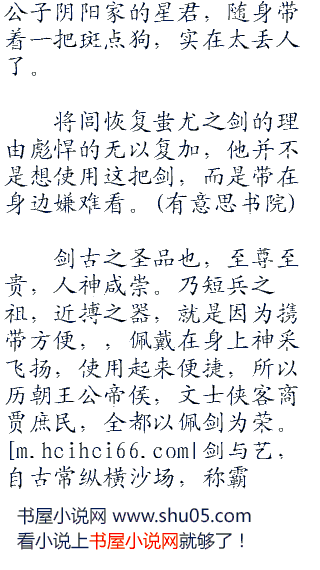 公子阴阳家的星君，随身带
着一把斑点狗，实在太丢人
了。
将闾恢复蚩尤之剑的理
由彪悍的无以复加，他并不
是想使用这把剑，而是带在
身边嫌难看。(有意思书院)
剑古之圣品也，至尊至
贵，人神咸崇。乃短兵之
祖，近搏之器，就是因为携
带方便，，佩戴在身上神采
飞扬，使用起来便捷，所以
历朝王公帝侯，文士侠客商
贾庶民，全都以佩剑为荣。
[m.hcihci66.com|剑与艺，
自古常纵横沙场，称霸
书屋小说网 www.shu05.com
看小说上书屋小说网就够了！